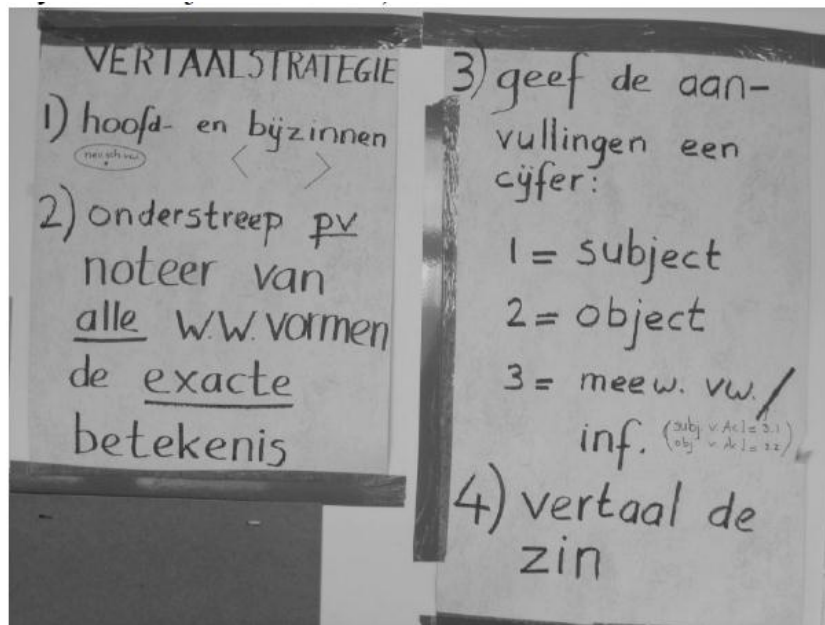 VERTAALSTRATEGIE
1) hoofd- en bijzinnen
< >
2) onderstreep pv
noteer van
alle W.W. vormen
de exacte
betekenis
3) geef de aan-
vullingen een
cijfer:
1 = subject
2 = object
3 = meew. vw. /
inf. (subj. v. AcI = 3.1
obj. v. AcI = 3.2)
4) vertaal de
zin